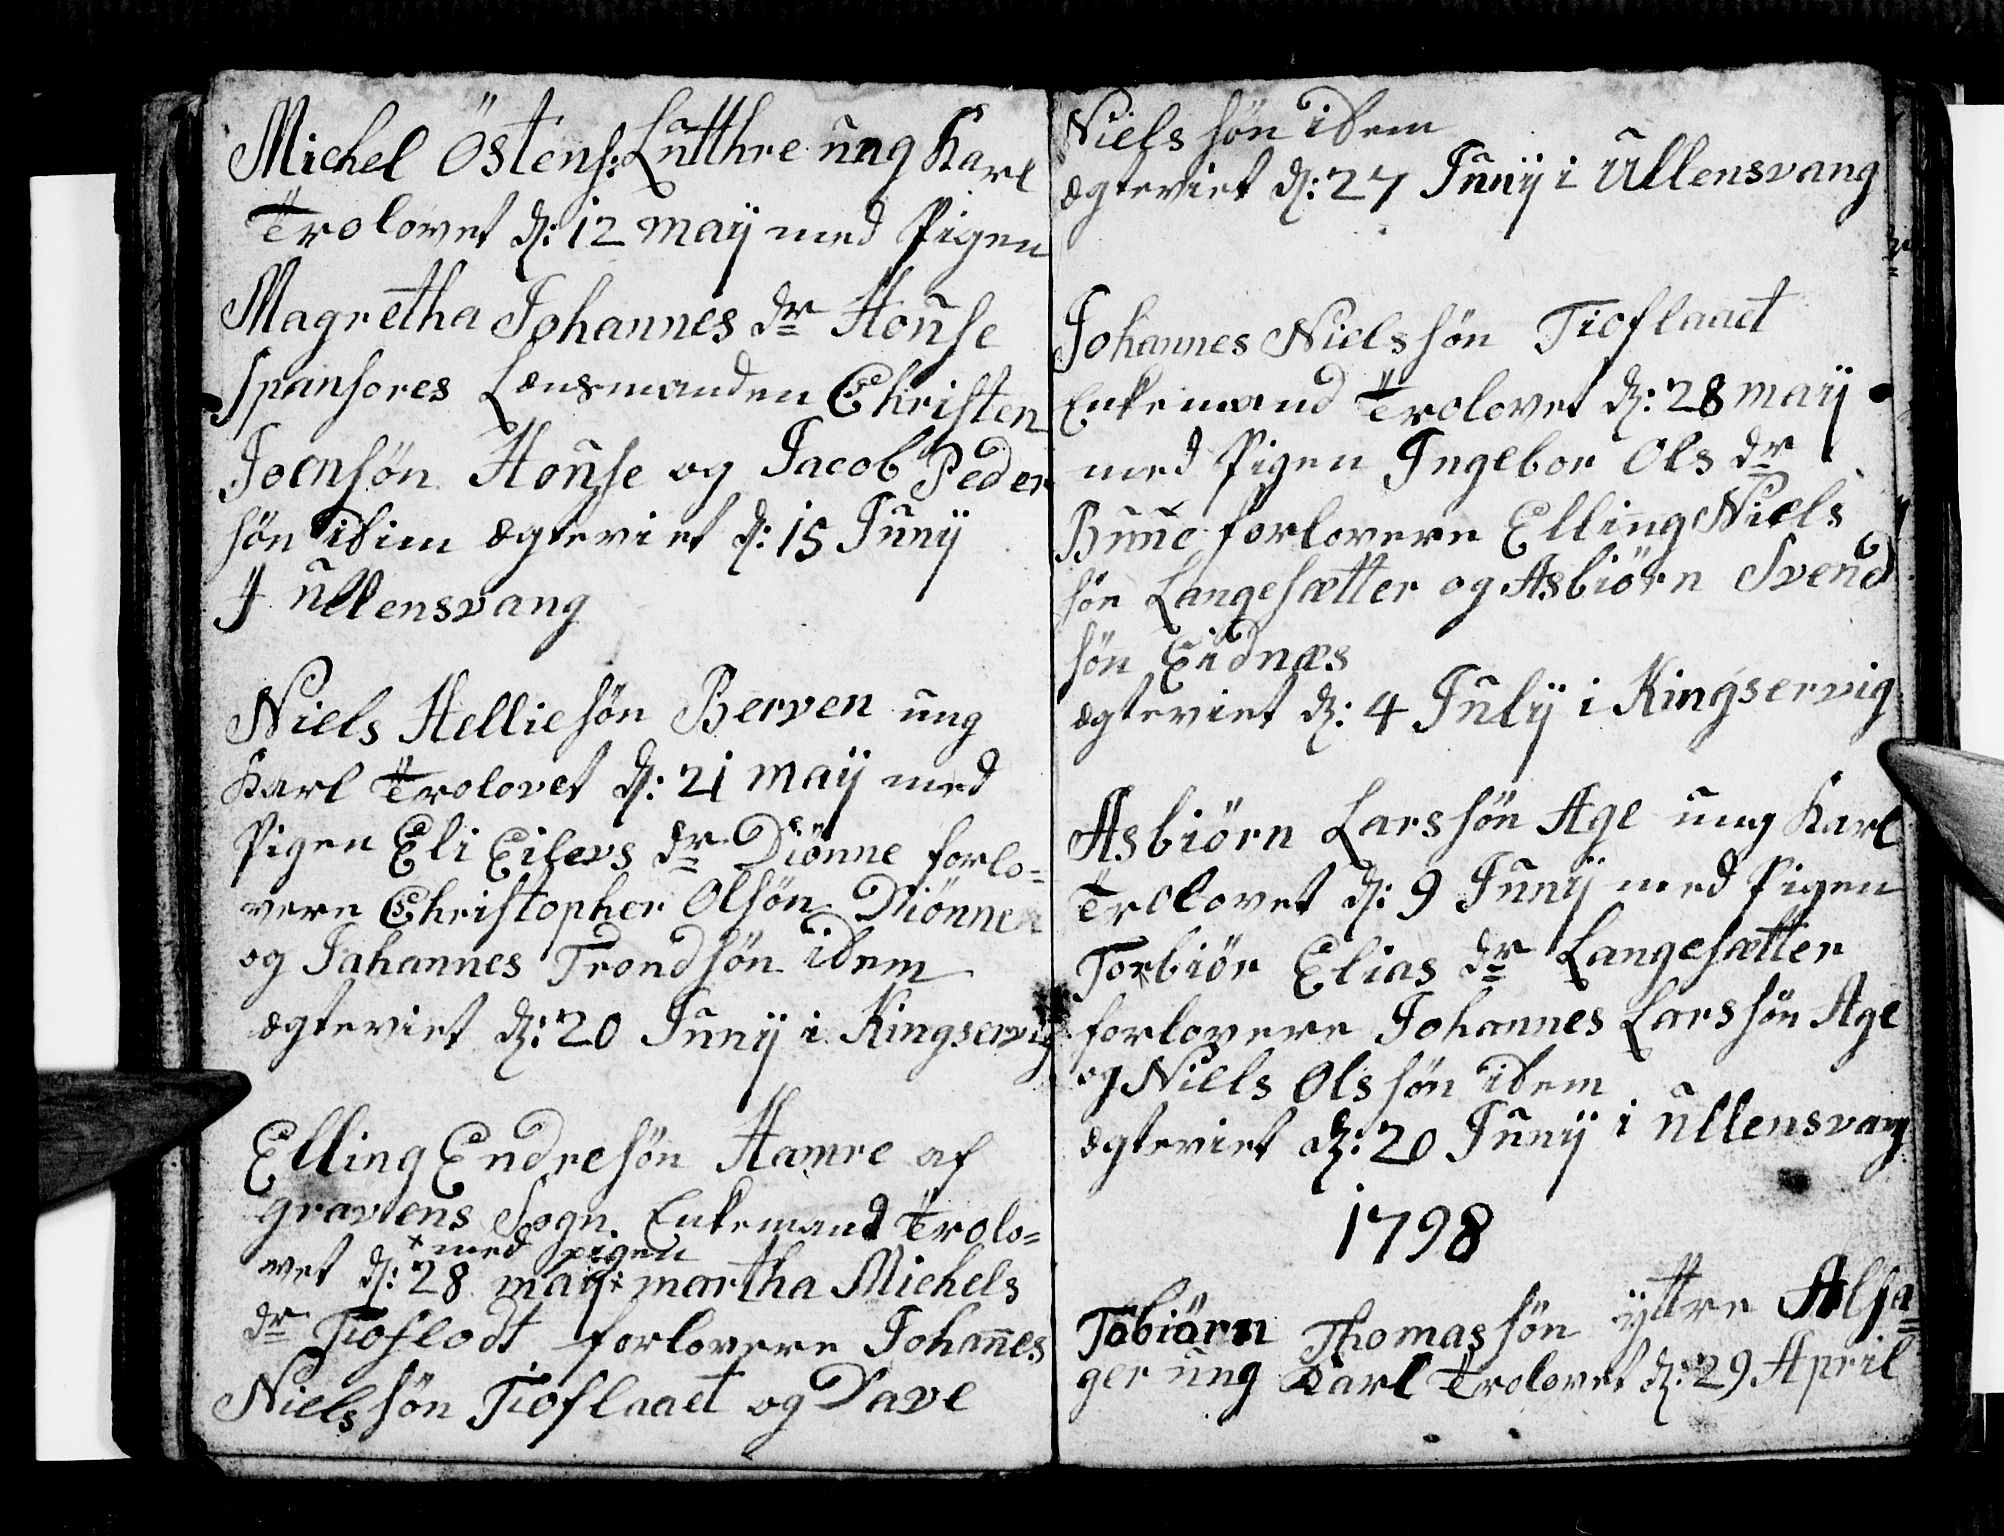 Michel Östens: Lutthre ung Karl
Trolovet d: 12 maÿ med Pigen
Magretha Johannes dr House
Spansores Lensmanden Christen
Joensön House og Jacob Peder
sön idim ægteviet d: 15 Junÿ
I Ullensvang
Niels Helliesön Berven ung
Karl Trolovet d: 21 maÿ med
Pigen Eli Eilevs dr Diönne forlo=
vere Christopher Olsön Diönne
og Jahannes Trondsön idem
ægteviet d: 20 Junÿ i Kingservig
Elling Endresön Hamre af
gravens Sogn Enkemand Trolo=
+ med pigen
vet d: 28 maÿ + martha Michels
dr Tioflodt forlovere Johannes
Nielssön Tioflaaet og Dave
Niels sön idem
ægteviet d: 27 Junÿ i Ullensvang
Johannes Nielssön Tioflaaet
Enkemand Trolovet d: 28 maÿ
med Pigen Ingebor Ols dr
Buue forlovere Elling Niels
sön Langesætter og Asbiörn Svend
sön Eidnæs
ægteviet d: 4 Julÿ i Kingservig
Asbiörn Larssön Age ung Karl
Trolovet d: 9 Junÿ med Pigen
Torbiör Elias dr Langesætter
forlovere Johannes Larssön Age
og Niels Olssön idem
ægteviet d: 20 Junÿ i Ullensvang
1798
Tobiörn Thomassön ÿttre Alsa=
ger ung Karl Trolovet d: 29 April